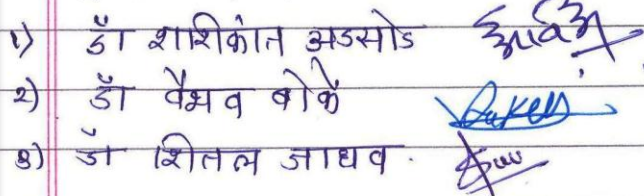 १) डॉ शशिकांत अडसोड
२) डॉ वैभव बोर्के
३) डॉ शितल जाधव.